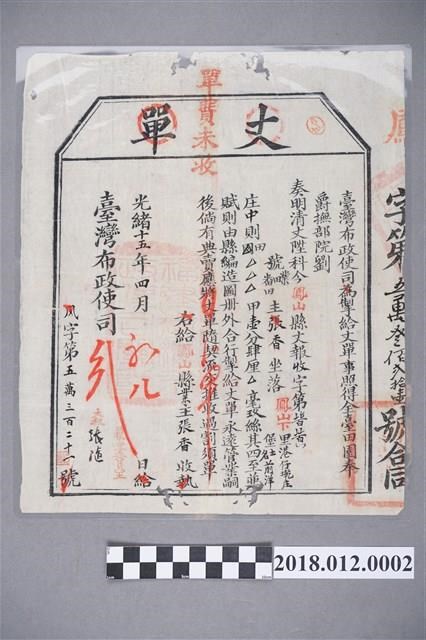 丈單
單費未收
臺灣布政使司為掣給丈單事照得全臺田園奉
爵撫部院劉
奏明清丈陞科今鳳山縣丈報收字第
號業主張香坐落鳳山下里港仔墘庄
堡土名前洋
庄中則田
甲壹分肆厘
毫玖絲其四至並
賦則由縣編造圖冊外合行掣給丈單永遠管業嗣
後倘有典賣應將丈單隨契流交推收過割須單
右給鳳山縣業主張香收執
光緒十五年四月
日給
臺灣布政使司
鳳字第五萬三百二十一號
字第五萬叁佰
號合同
2018.012.0002